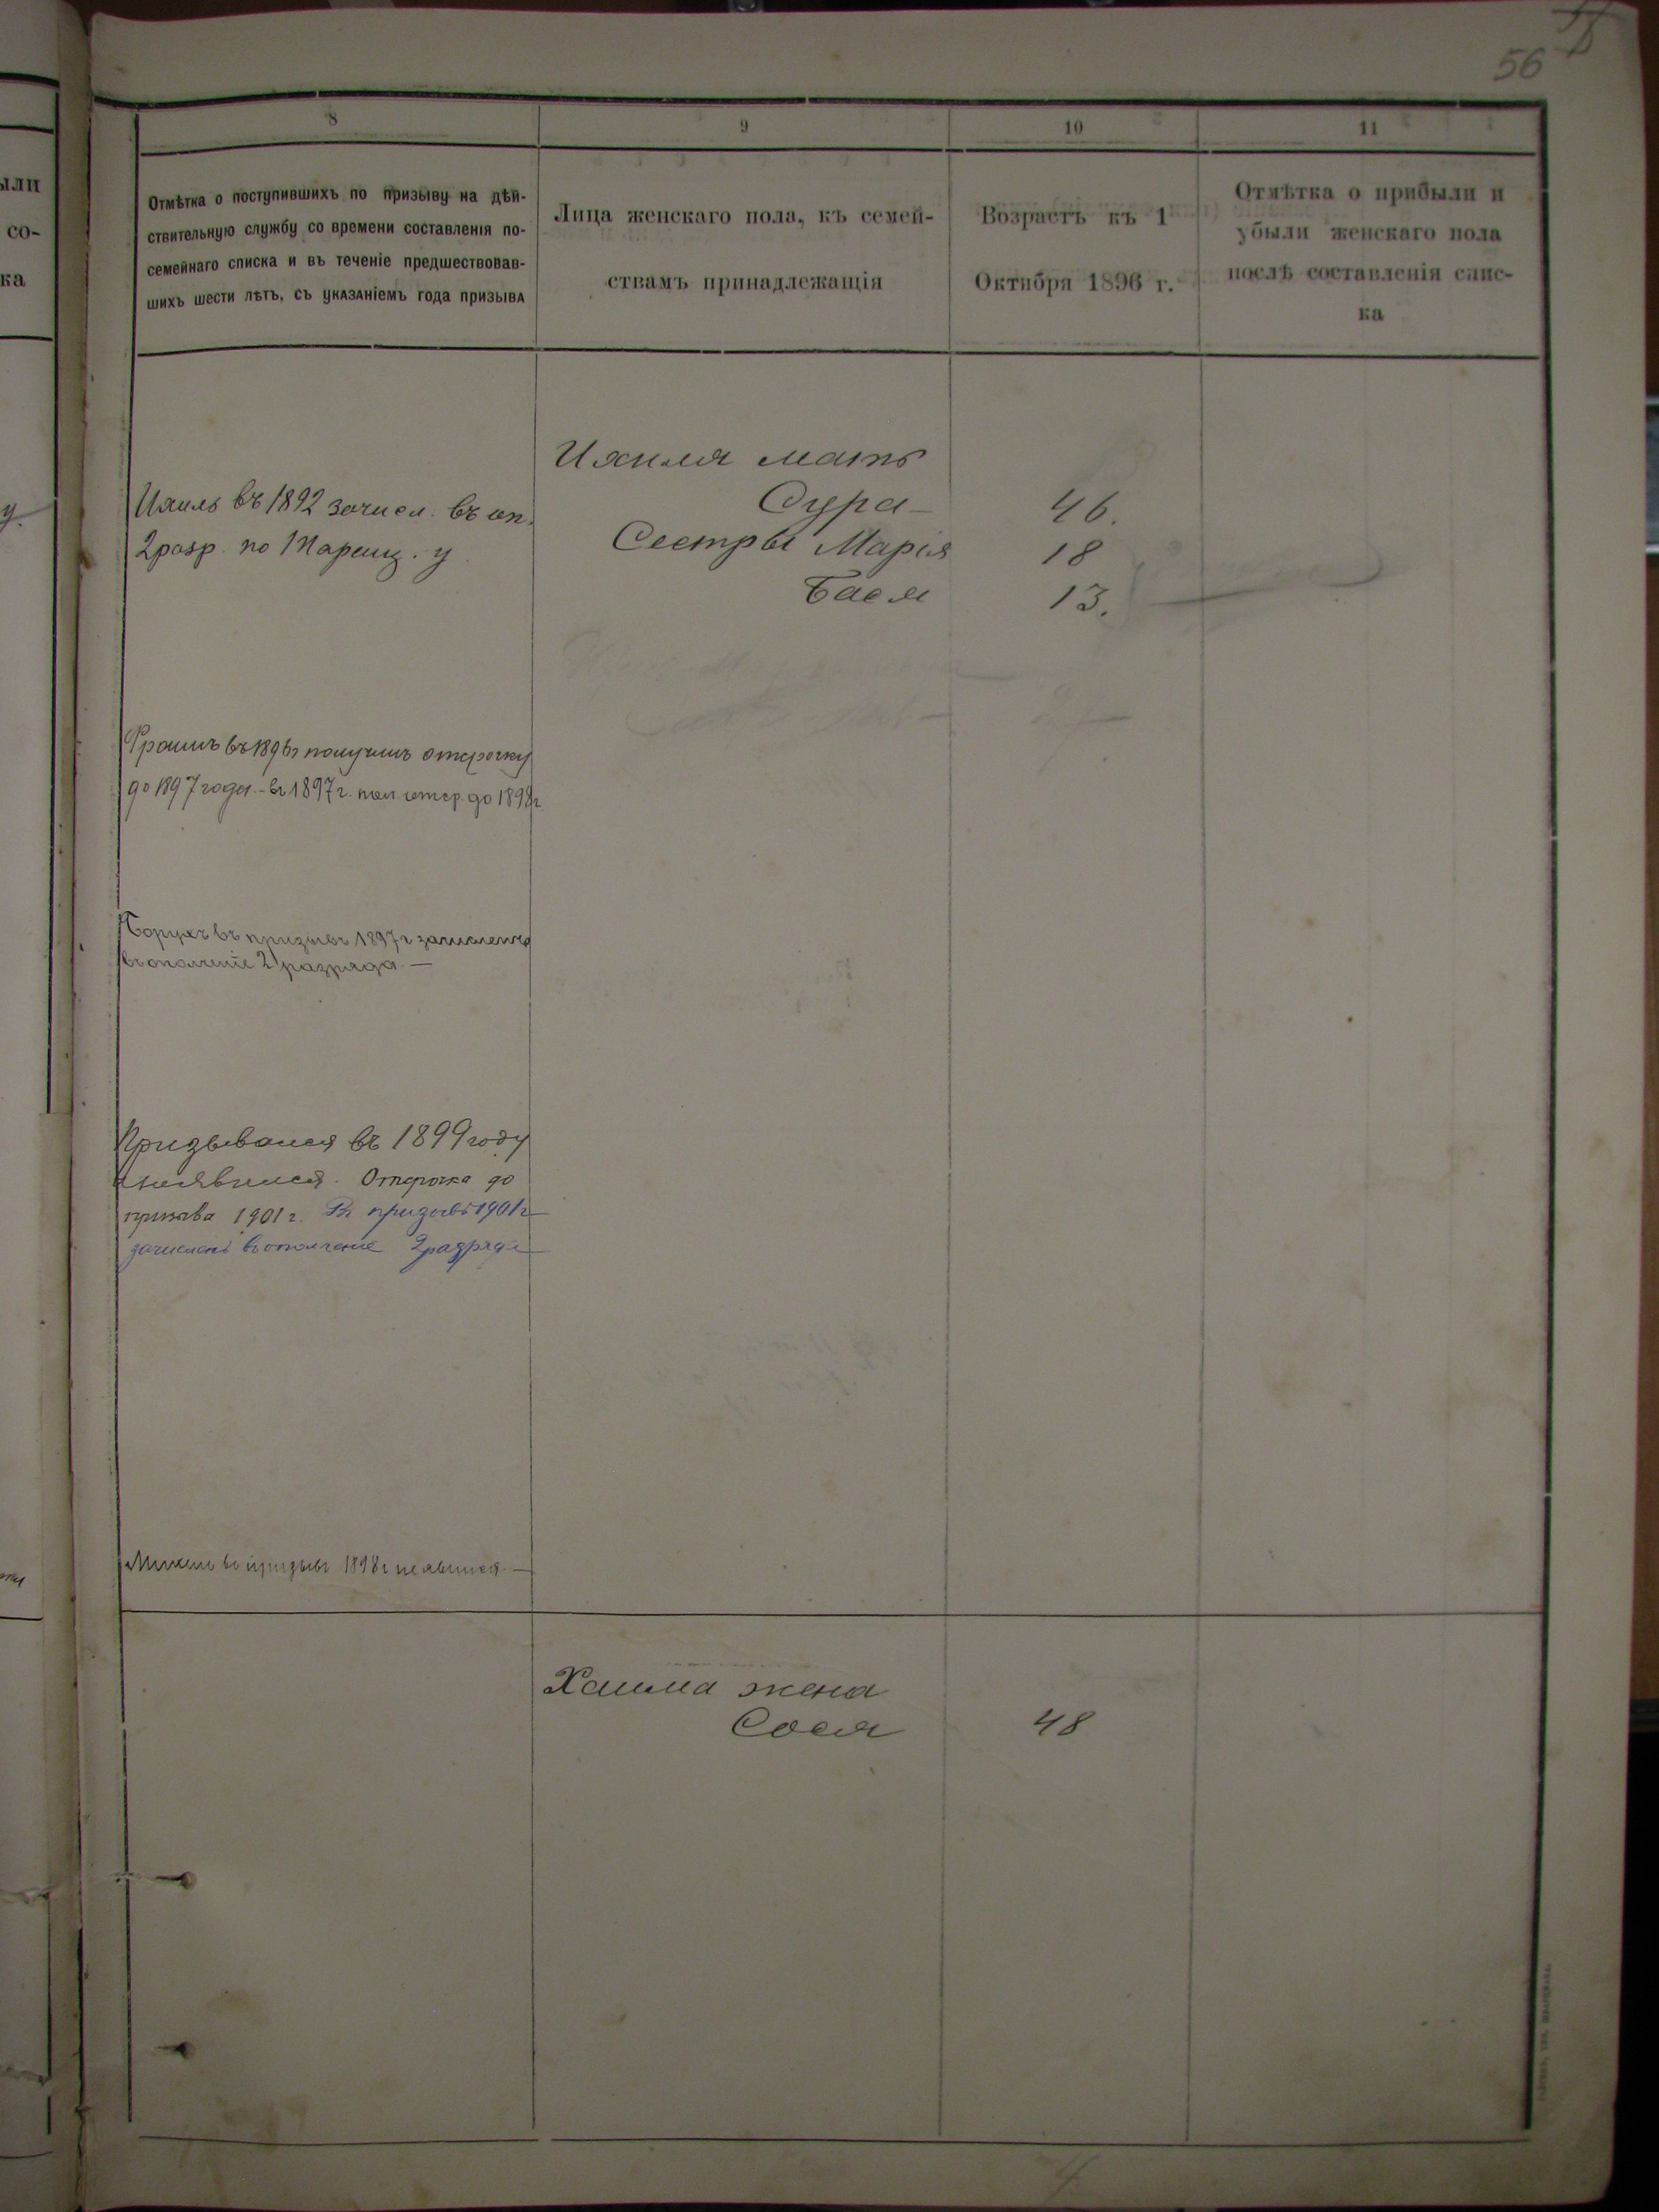 56
8
9
10
11
Отмѣтка о поступившихъ по призыву на дѣй-
ствительную службу со времени составленія по-
семейнаго списка и въ теченіе предшествовав-
шихъ шести лѣтъ, съ указаніемъ года призыва
Лица женскаго пола, къ семей-
ствамъ принадлежащія
Возрастъ къ 1
Октября 1896 г.
Отмѣтка о прибыли и
убыли женскаго пола
послѣ составленія спис-
ка
Ихиля мать
Сура 46.
Сестры Марія 18
Бася 13.
Ихиль въ 1892 зачисл. въ оп.
2 разр. по
въ 1896 г получилъ отсрочку
до 1897 года. - въ 1897 г. пол. отср. до 1898 г
Борухъ въ призывъ 1897 г зачисленъ
въ ополченіе 2 разряда. —
Призывался въ 1899 году
неявился. Отсрочка до
призыва 1901 г. Въ призывъ 1901 г
зачисленъ въ ополченіе 2 разряда
въ призывъ 1898 г не явился. —
Хаима жена
Сося 48